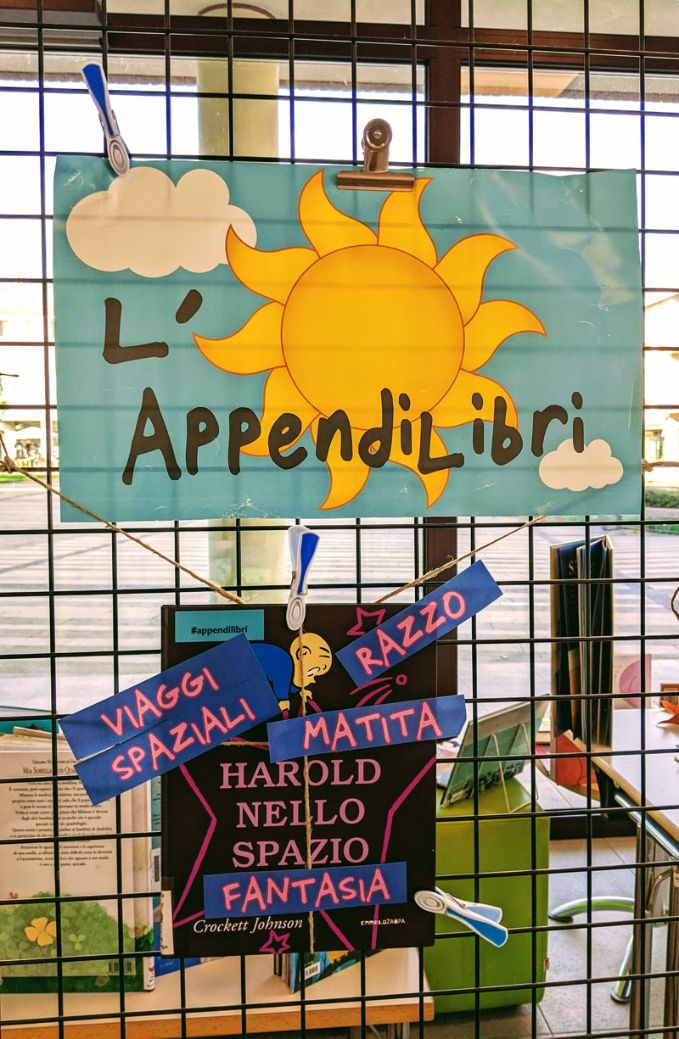 L'
AppendiLibri
#appendilibri
RAZZO
VIAGGI
SPAZIALI
MATITA
HAROLD
NELLO
SPAZIO
FANTASIA
Crockett Johnson
CAMELOZAMPA